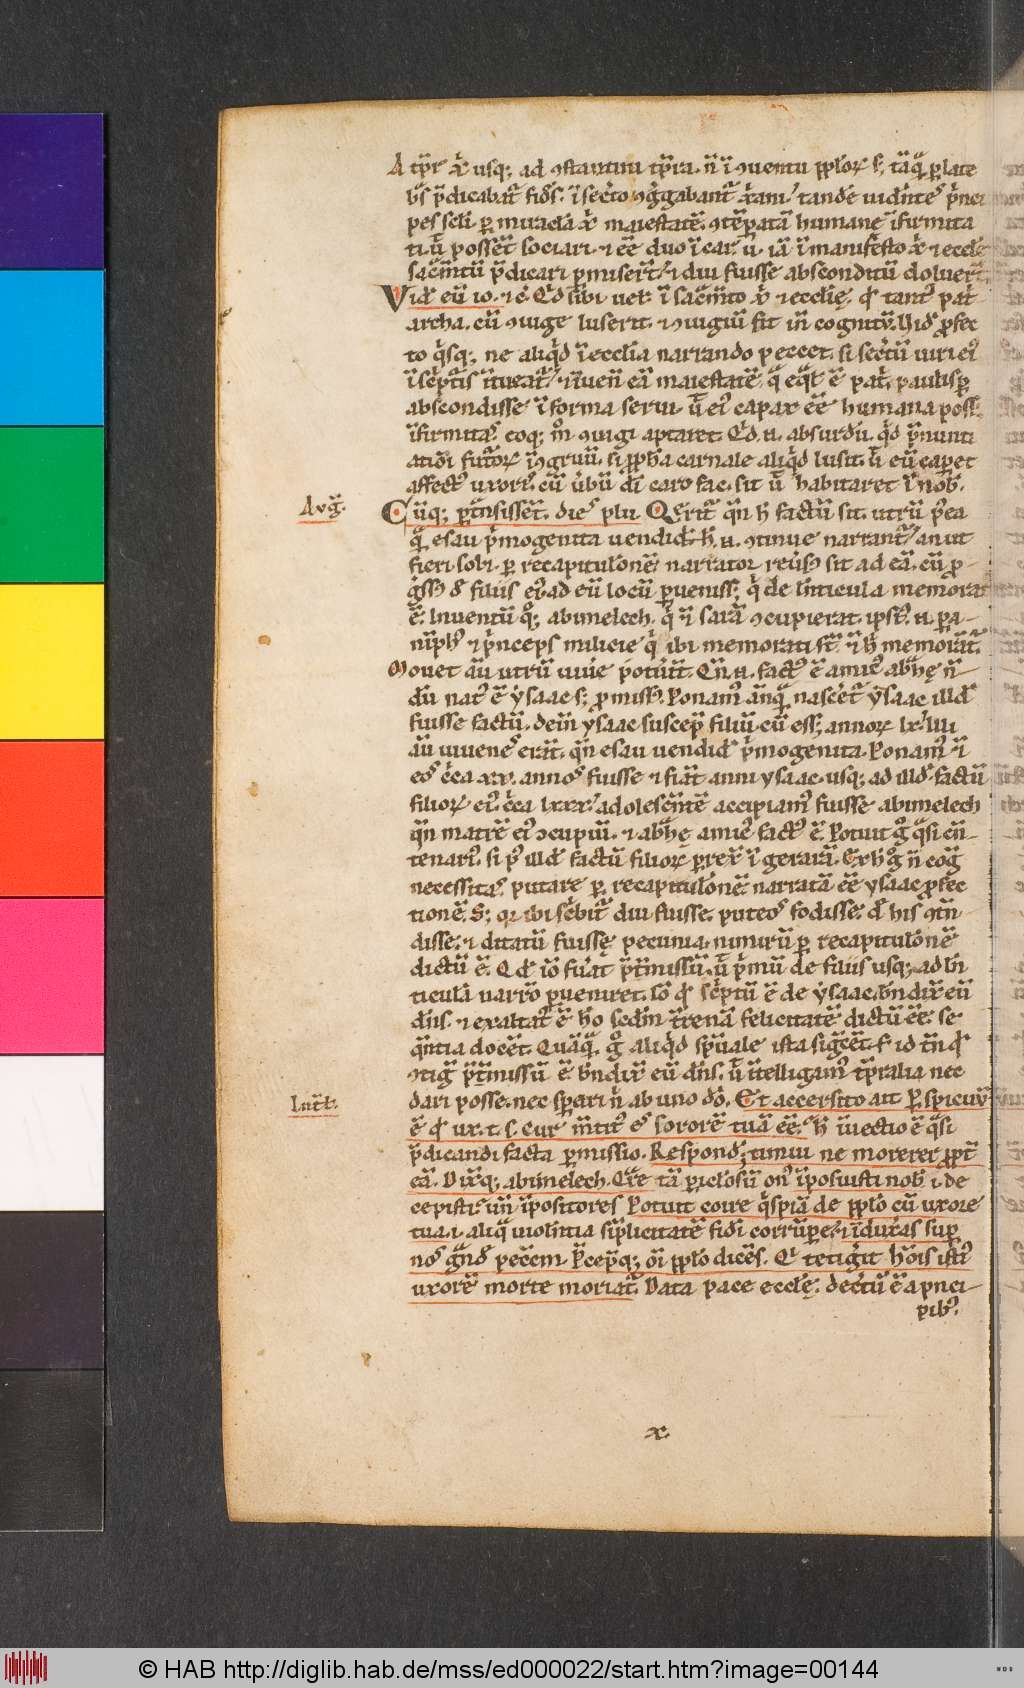 A tp̄r x̄ usq; ad ɔstantini tp̄ra. n̄ ī ɔuentu pp̄loꝝ s; tāq̄ ꝑ late
b̄s p̄dicabat᷑ fid̾s. ī sec̄to ɔg̾gabant᷑ x̄ani tandē uid̄ntes p̄nci
pes scl̄i ꝑ miracl̄a x̄ maiestatē ɔtēꝑatā humane īfirmita
ti. ū possēt sociari. ⁊ ēē duo ī car. ū. iā ī manifesto x̄ ⁊ eccl̄e
sac̄mtū p̄dicari ꝑmiser̄t ⁊ diu fuisse absconditū doluer̄t
Vid̾ eū io. ⁊ c̾. Qd̾ sibi uet ī sac̄mto x̄ ⁊ eccl̄ie. qd̾ tant᷒ pat̾
archa. cū ɔiuge luserit. ⁊ ɔiugiū sit īn cognitū. Vid̾ ꝓfec
to q̾sq; ne aliq̾d ī eccl̄ia narrando peccet. si sec̄tū uiri ei᷒
ī sc̾pt̾is ītueat᷑. ⁊ īueni eā maiestatē q̄ eq̄l ē pat̾. paulisꝑ
abscondisse ī forma serui. ū ei᷒ capax ēē humana poss;
īfirmitas. eoq; m̊ ɔiugi aptaret. Qd̾. n. absurdū. q̾d p̄nunti
atiōi futoꝝ īɔgruū. si pp̄h̄a carnale aliq̾d lusit. ū eū caperet
affect᷒ uxori᷒. cū ūbū dī caro fac. sit ū habitaret ī nob̾.
Aug̾.
Cūq; ꝑt̾nsissēt. dies plu Q̄erit᷑ q̄n h̄ factū sit. utrū p̾ea
q̄ esau p̾mogenita uendid̾. h̄. n. ɔtinue narrant᷑. an ut
fieri solꝫ. ꝑ recapitul̾onē narrator reūs᷒ sit ad eā. cū ꝓ
g̾ss᷒ d̾ filiis ei᷒. ad eū locū ꝑueniss; q̾ de l̾nticula memorat᷒
ē. Inuentū q̊; abimelech. q̾ ⁊ī sarā ɔcupierat. ip̄sī. n. pa
nīph᷒ ⁊ p̾nceps milicie q̾ ibi memorati s̄t. ⁊ h̾ memorāt᷑.
Mouet aū utrū uiue potūit. Q̄n. n. fact᷒ ē amic᷒ abh̄e n̄
dū nat᷒ ē ysaac s; ꝓmiss᷒. Ponam᷒ ān q̄ nascēt ysaac illd̾
fuisse factū. dein ysaac suscep̄ filiū. cū ess; annoꝝ lx. illi
aū iuuenes erāt. q̄n esau uendid̾ p̾mogenita. Ponam᷒ ⁊
eos c̾ca xx. annos fuisse ⁊ fiāt anni ysaac. usq; ad illd̾ factū
filioꝝ ei᷒. c̾ca lxxx. adolesc̄ntē accipiam᷒ fuisse abimelech
q̄n matrē ei᷒ ɔcupiū. ⁊ abh̄e amic᷒ fact᷒ ē. Potuit g̊ q̾si cn̄
tenari᷒. si p᷒ illd̾ factū filioꝝ ꝑrex̄ ī gerarā. Ex h̾ g̊ n̄ cog̾
necessitas putare ꝑ recapitul̾onē narratā ēē ysaac ꝓfec
tionē. S; qꝛ ibi sc̾bit᷑ diu fuisse. puteos fodisse. d̾ his ɔtn̄
disse. ⁊ ditatū fuisse pecunia. nimirū ꝑ recapitul̾onē
dictū ē. Qd̾ iō fūat p̄t̾missū. ū p̾mū de filiis usq; ad l̾n
ticulā narrō ꝑueniret. sō qd̾ sc̾ptū ē de ysaac. b̄ndix̾ eū
dn̄s. ⁊ exaltat᷒ ē h̄o sedm t̾renā felicitatē dictū ēē. se
q̄ntia docēt. Quāq̄ g̊ aliq̾d sp̄uale ista sig̾cēt. s; id tn̄ qd̾
ɔtig̾ p̄t̾missū ē. b̄ndix̾ eū dn̄s. ū ītelligam᷒ tp̄ralia nec
Int̾l.
dari posse. nec sperari n̄ ab uno dō. Et accersito ait Ꝑspicuū
ē qd̾ ux. t. s̄. cur m̄tit᷒ es sororē tuā ēē. h̄ īuectio ē q̾si
p̄dicandi facta ꝑmissio. Respond̾. timui ne morerer ꝓpt̾
eā. Dix̾q; abimelech. Q̾re tā ꝑiclosū on᷒ īposuisti nob̾. i. de
cepisti. ⁊ un̄ īpositores Potuit coire q̾spiā de pp̄lo cū uxore
tua. i. aliq̾ uiolntia sīplicitatē fidī corrūꝑe. ⁊ īduxas sup
nos g̾nd̾ pecc̄m. P̾cepitq; oī pp̄lo dicēs. Qi tetig̾it h̄ōis isti᷒
uxorē morte moriat᷑. Data pace eccl̄e. dec̄tū ē a pnci
pib᷒.
x.
© HAB http://diglib.hab.de/mss/ed000022/start.htm?image=00144